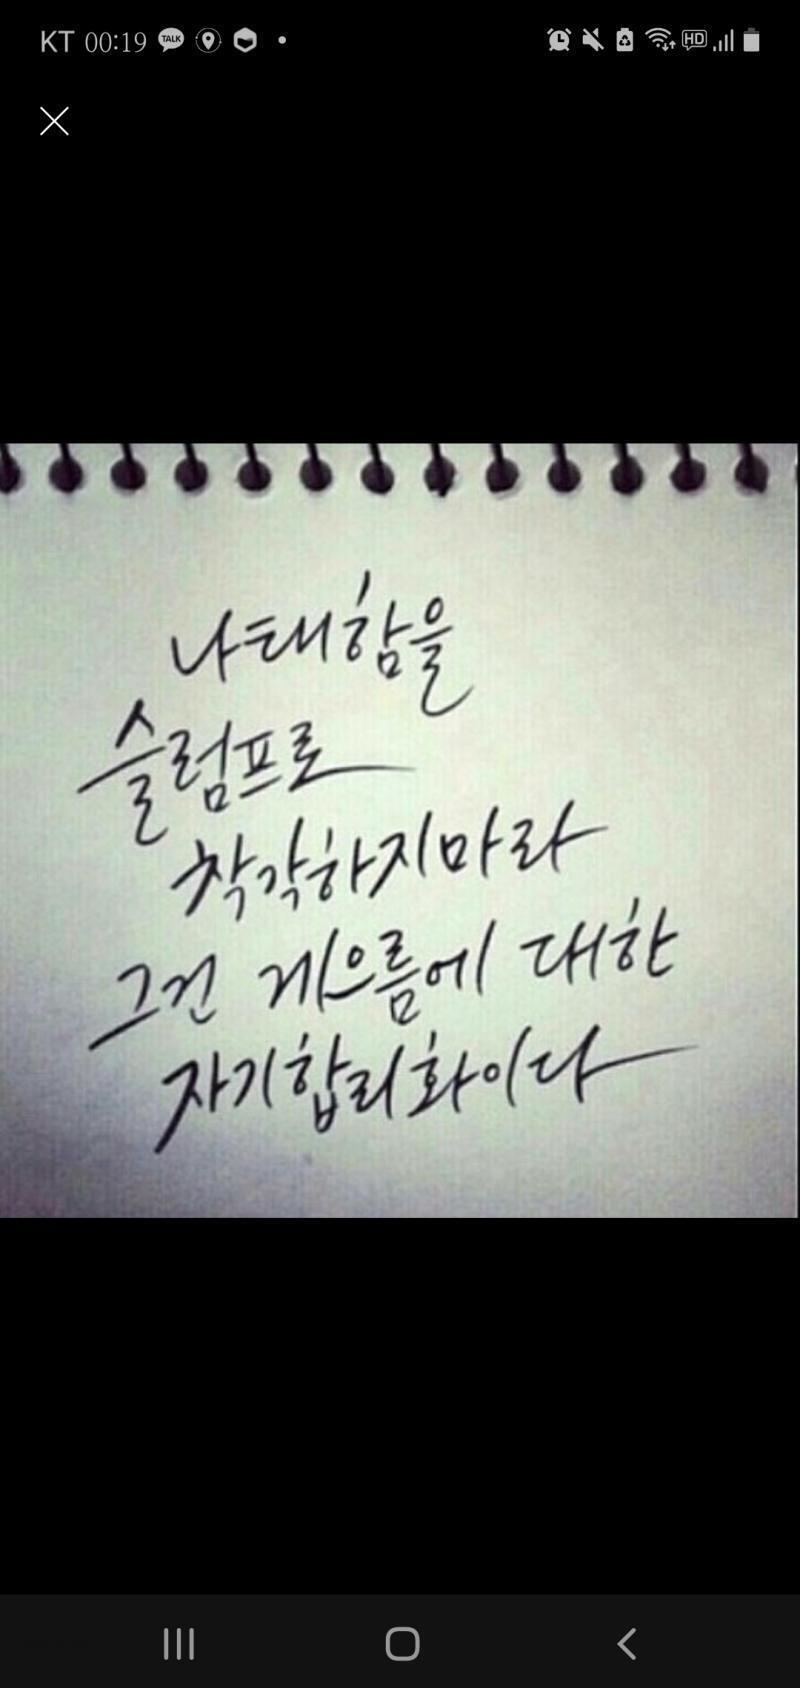 KT 00:19 TALK HD
나태함을
슬럼프로
착각하지마라
그건 게으름에 대한
자기합리화이다